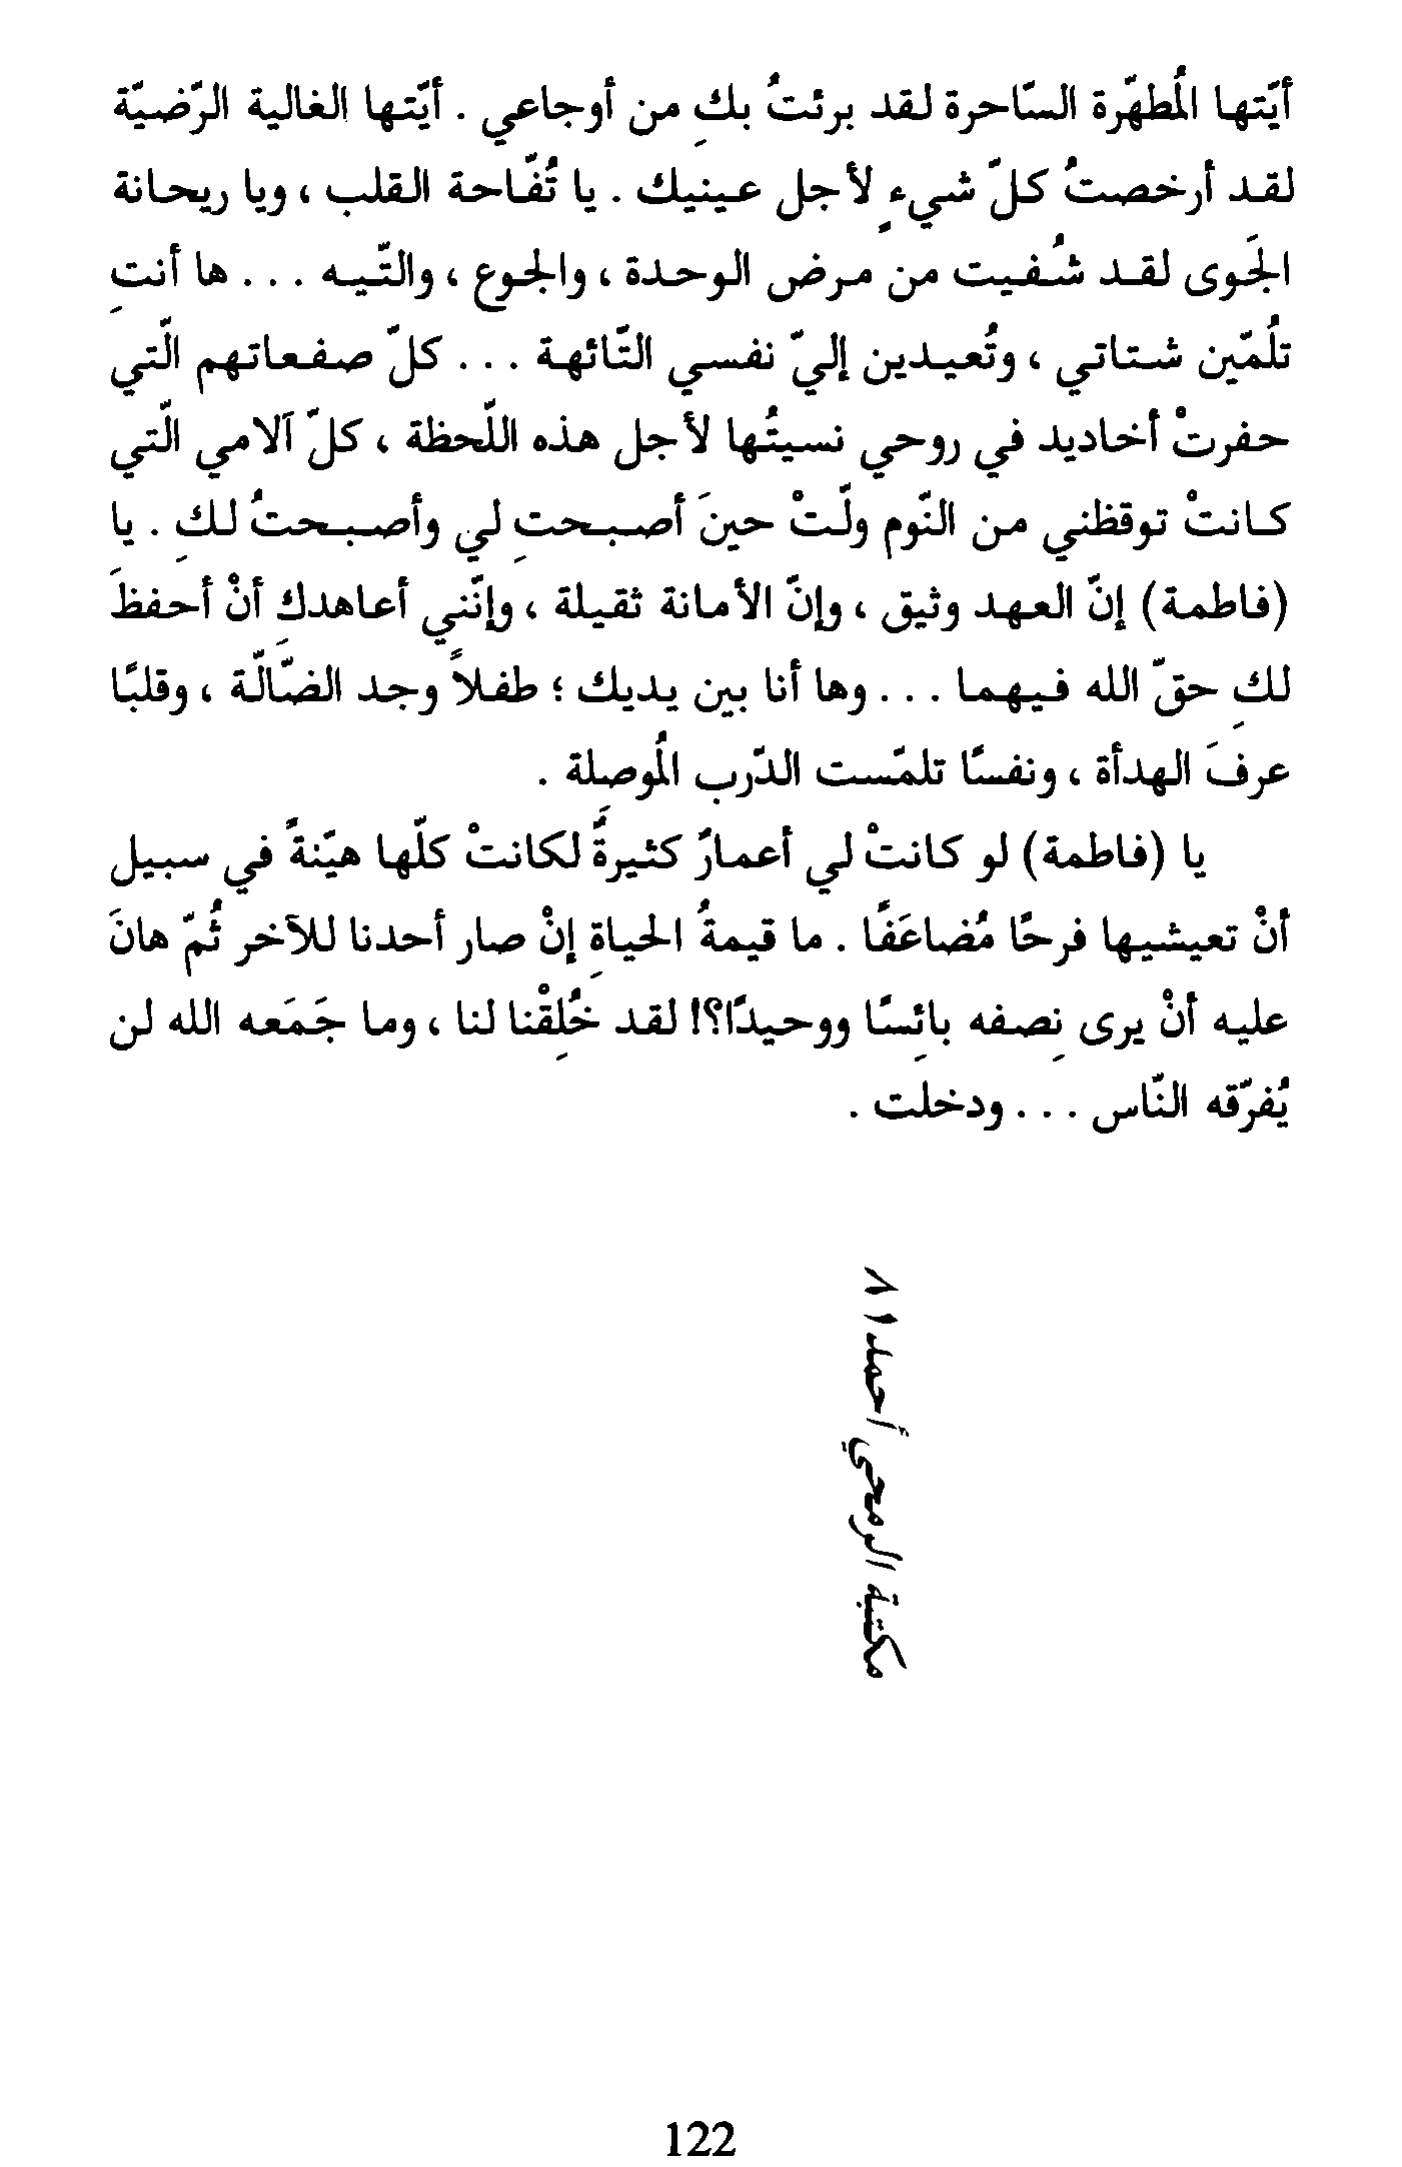 أيّتها المُطهّرة السّاحرة لقد برئتُ بكِ من أوجاعي . أيّتها الغالية الرّضيّة
لقد أرخصتُ كلّ شيءٍ لأجل عينيك . يا تُفّاحة القلب ، ويا ريحانة
الجَوى لقد شُفيت من مرض الوحدة ، والجوع ، والتّيه ... ها أنتِ
تلُمّين شتاتي ، وتُعيدين إليّ نفسي التّائهة ... كلّ صفعاتهم الّتي
حفرتْ أخاديد في روحي نسيتُها لأجل هذه اللّحظة ، كلّ آلامي الّتي
كانتْ توقظني من النّوم ولّتْ حينَ أصبحتِ لي وأصبحتُ لكِ . يا
(فاطمة) إنّ العهد وثيق ، وإنّ الأمانة ثقيلة ، وإنّني أعاهدكِ أنْ أحفظَ
لكِ حقّ الله فيهما ... وها أنا بين يديك ؛ طفلاً وجد الضّالّة ، وقلبًا
عرفَ الهدأة ، ونفسًا تلمّست الدّرب المُوصلة .
يا (فاطمة) لو كانتْ لي أعمارٌ كثيرةٌ لكانتْ كلّها هيّنةً في سبيل
أنْ تعيشيها فرحًا مُضاعَفًا . ما قيمةُ الحياةِ إنْ صار أحدنا للآخر ثُمّ هانَ
عليه أنْ يرى نِصفه بائِسًا ووحيدًا؟! لقد خُلِقْنا لنا ، وما جَمَعه الله لن
يُفرّقه النّاس ... ودخلت .
مكتبة الرمحي أحمد ٨١
122